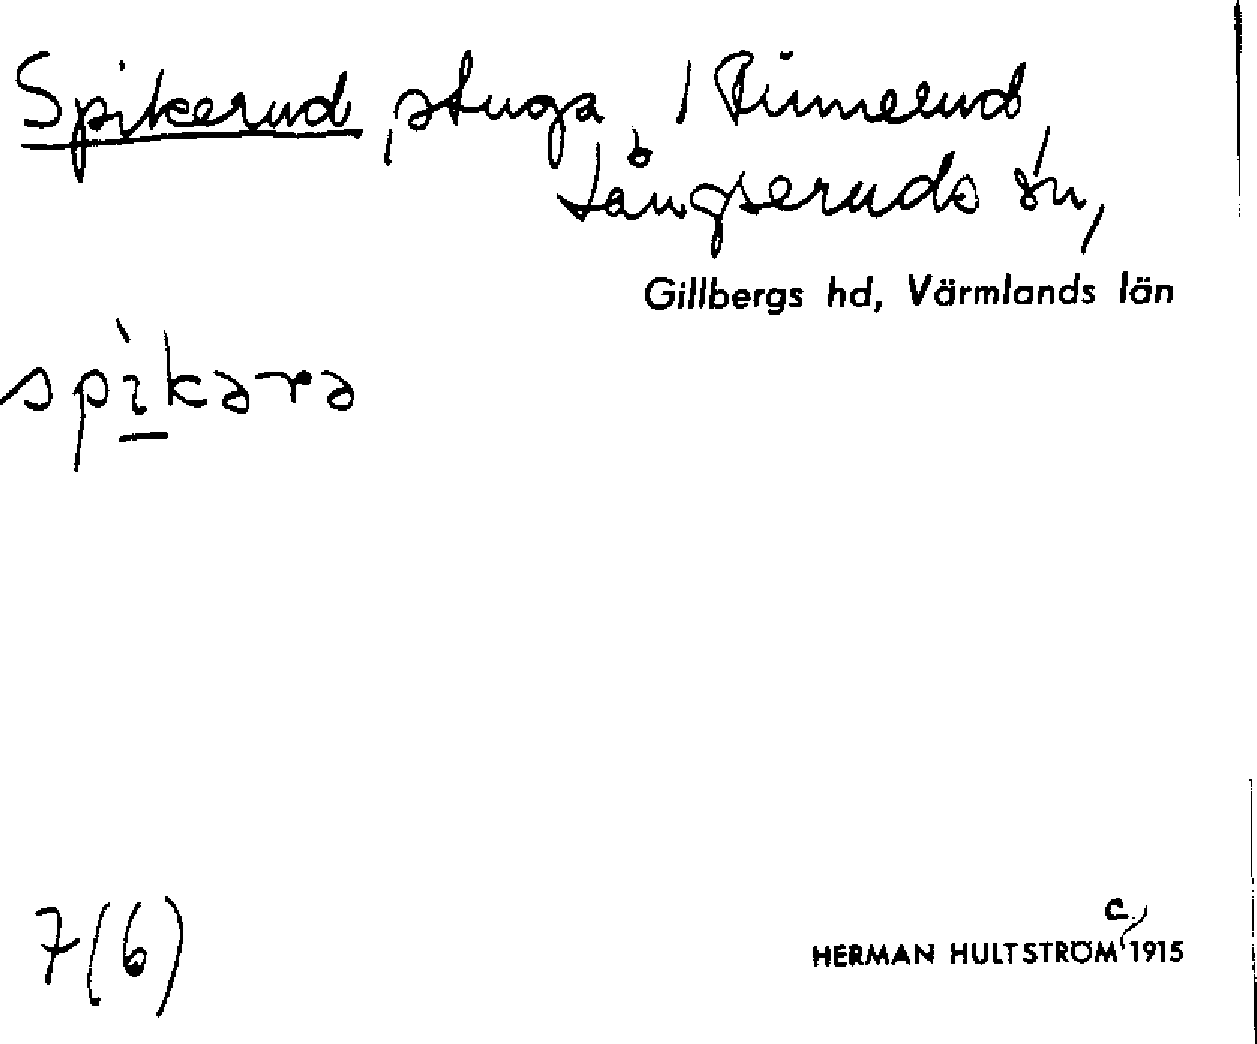 Spikerud, stuga / Rinnerud,
Långseruds sn,
Gillbergs hd, Värmlands län
spi̠̇kərə
7(6)
c.
HERMAN HULTSTRÖM 1915